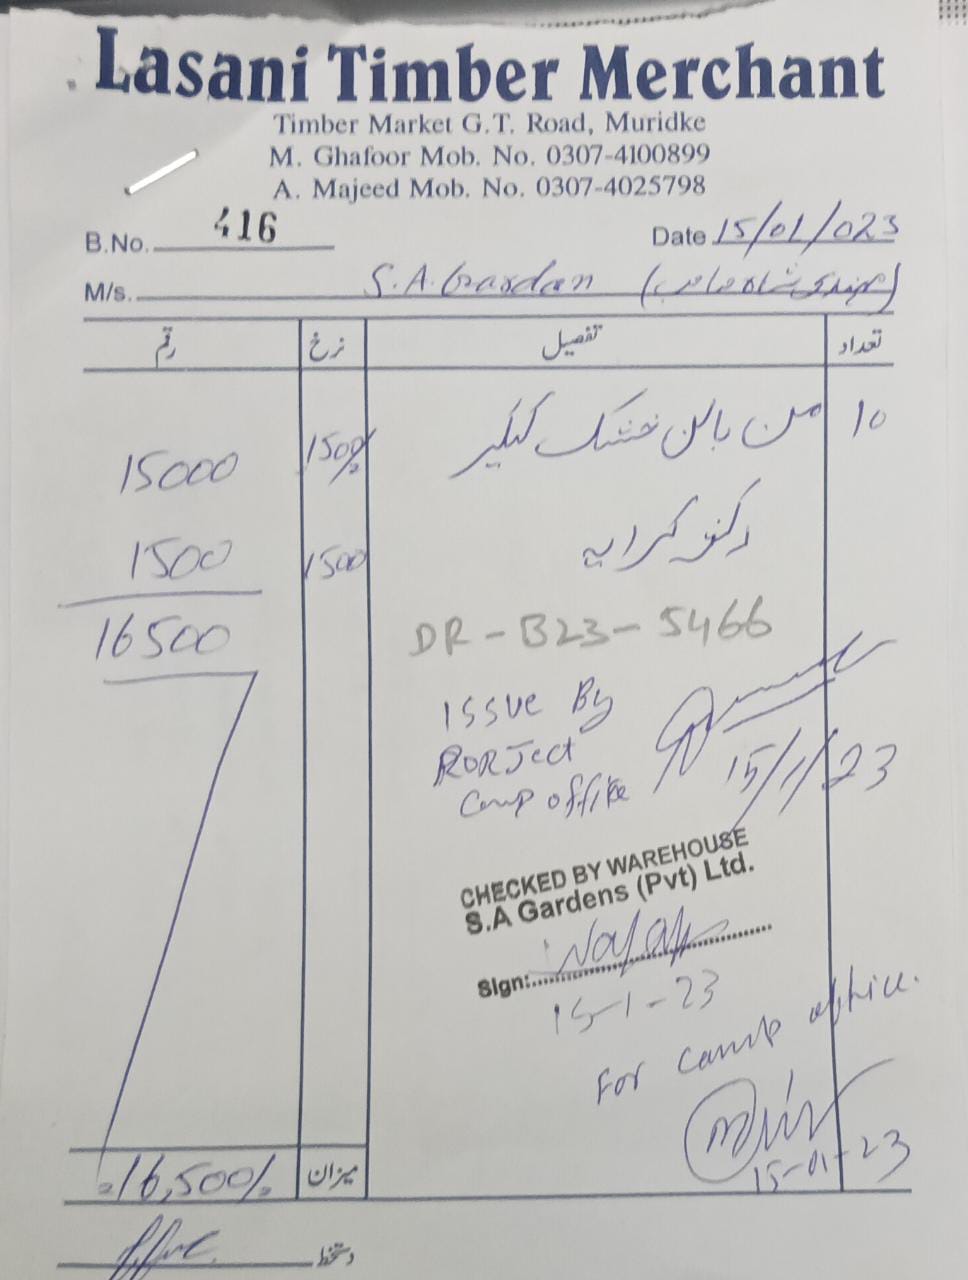 Lasani Timber Merchant
Timber Market G.T. Road, Muridke
M. Ghafoor Mob. No. 0307-4100899
A. Majeed Mob. No. 0307-4025798
B.No. 416 Date 15/01/023
M/s. S.A.Gardan
تعداد تفصیل نرخ رقم
10 من بالن خشک کیکر 1500/- 15000
رکشہ کرایہ 1500 1500
16500
DR-B23-5466
ISSUE By
RORJect
Camp office
15/1/23
CHECKED BY WAREHOUSE
S.A Gardens (Pvt) Ltd.
Sign:
15-1-23
For camp office.
15-01-23
میزان 16,500/-
دستخط